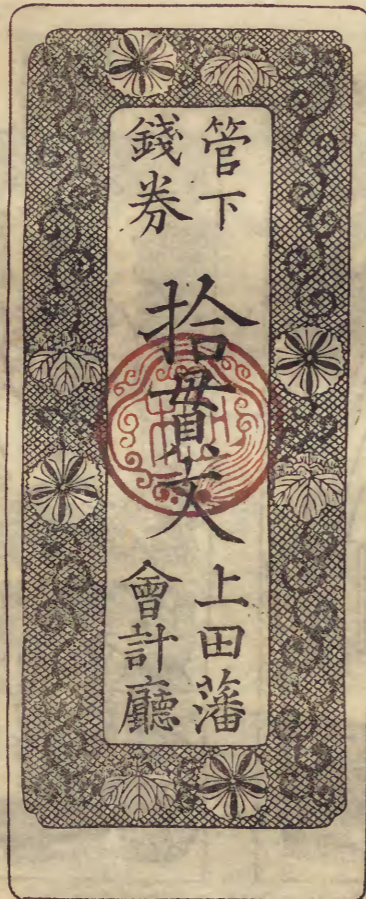 管下
錢券
拾貫文
上田藩
會計廳